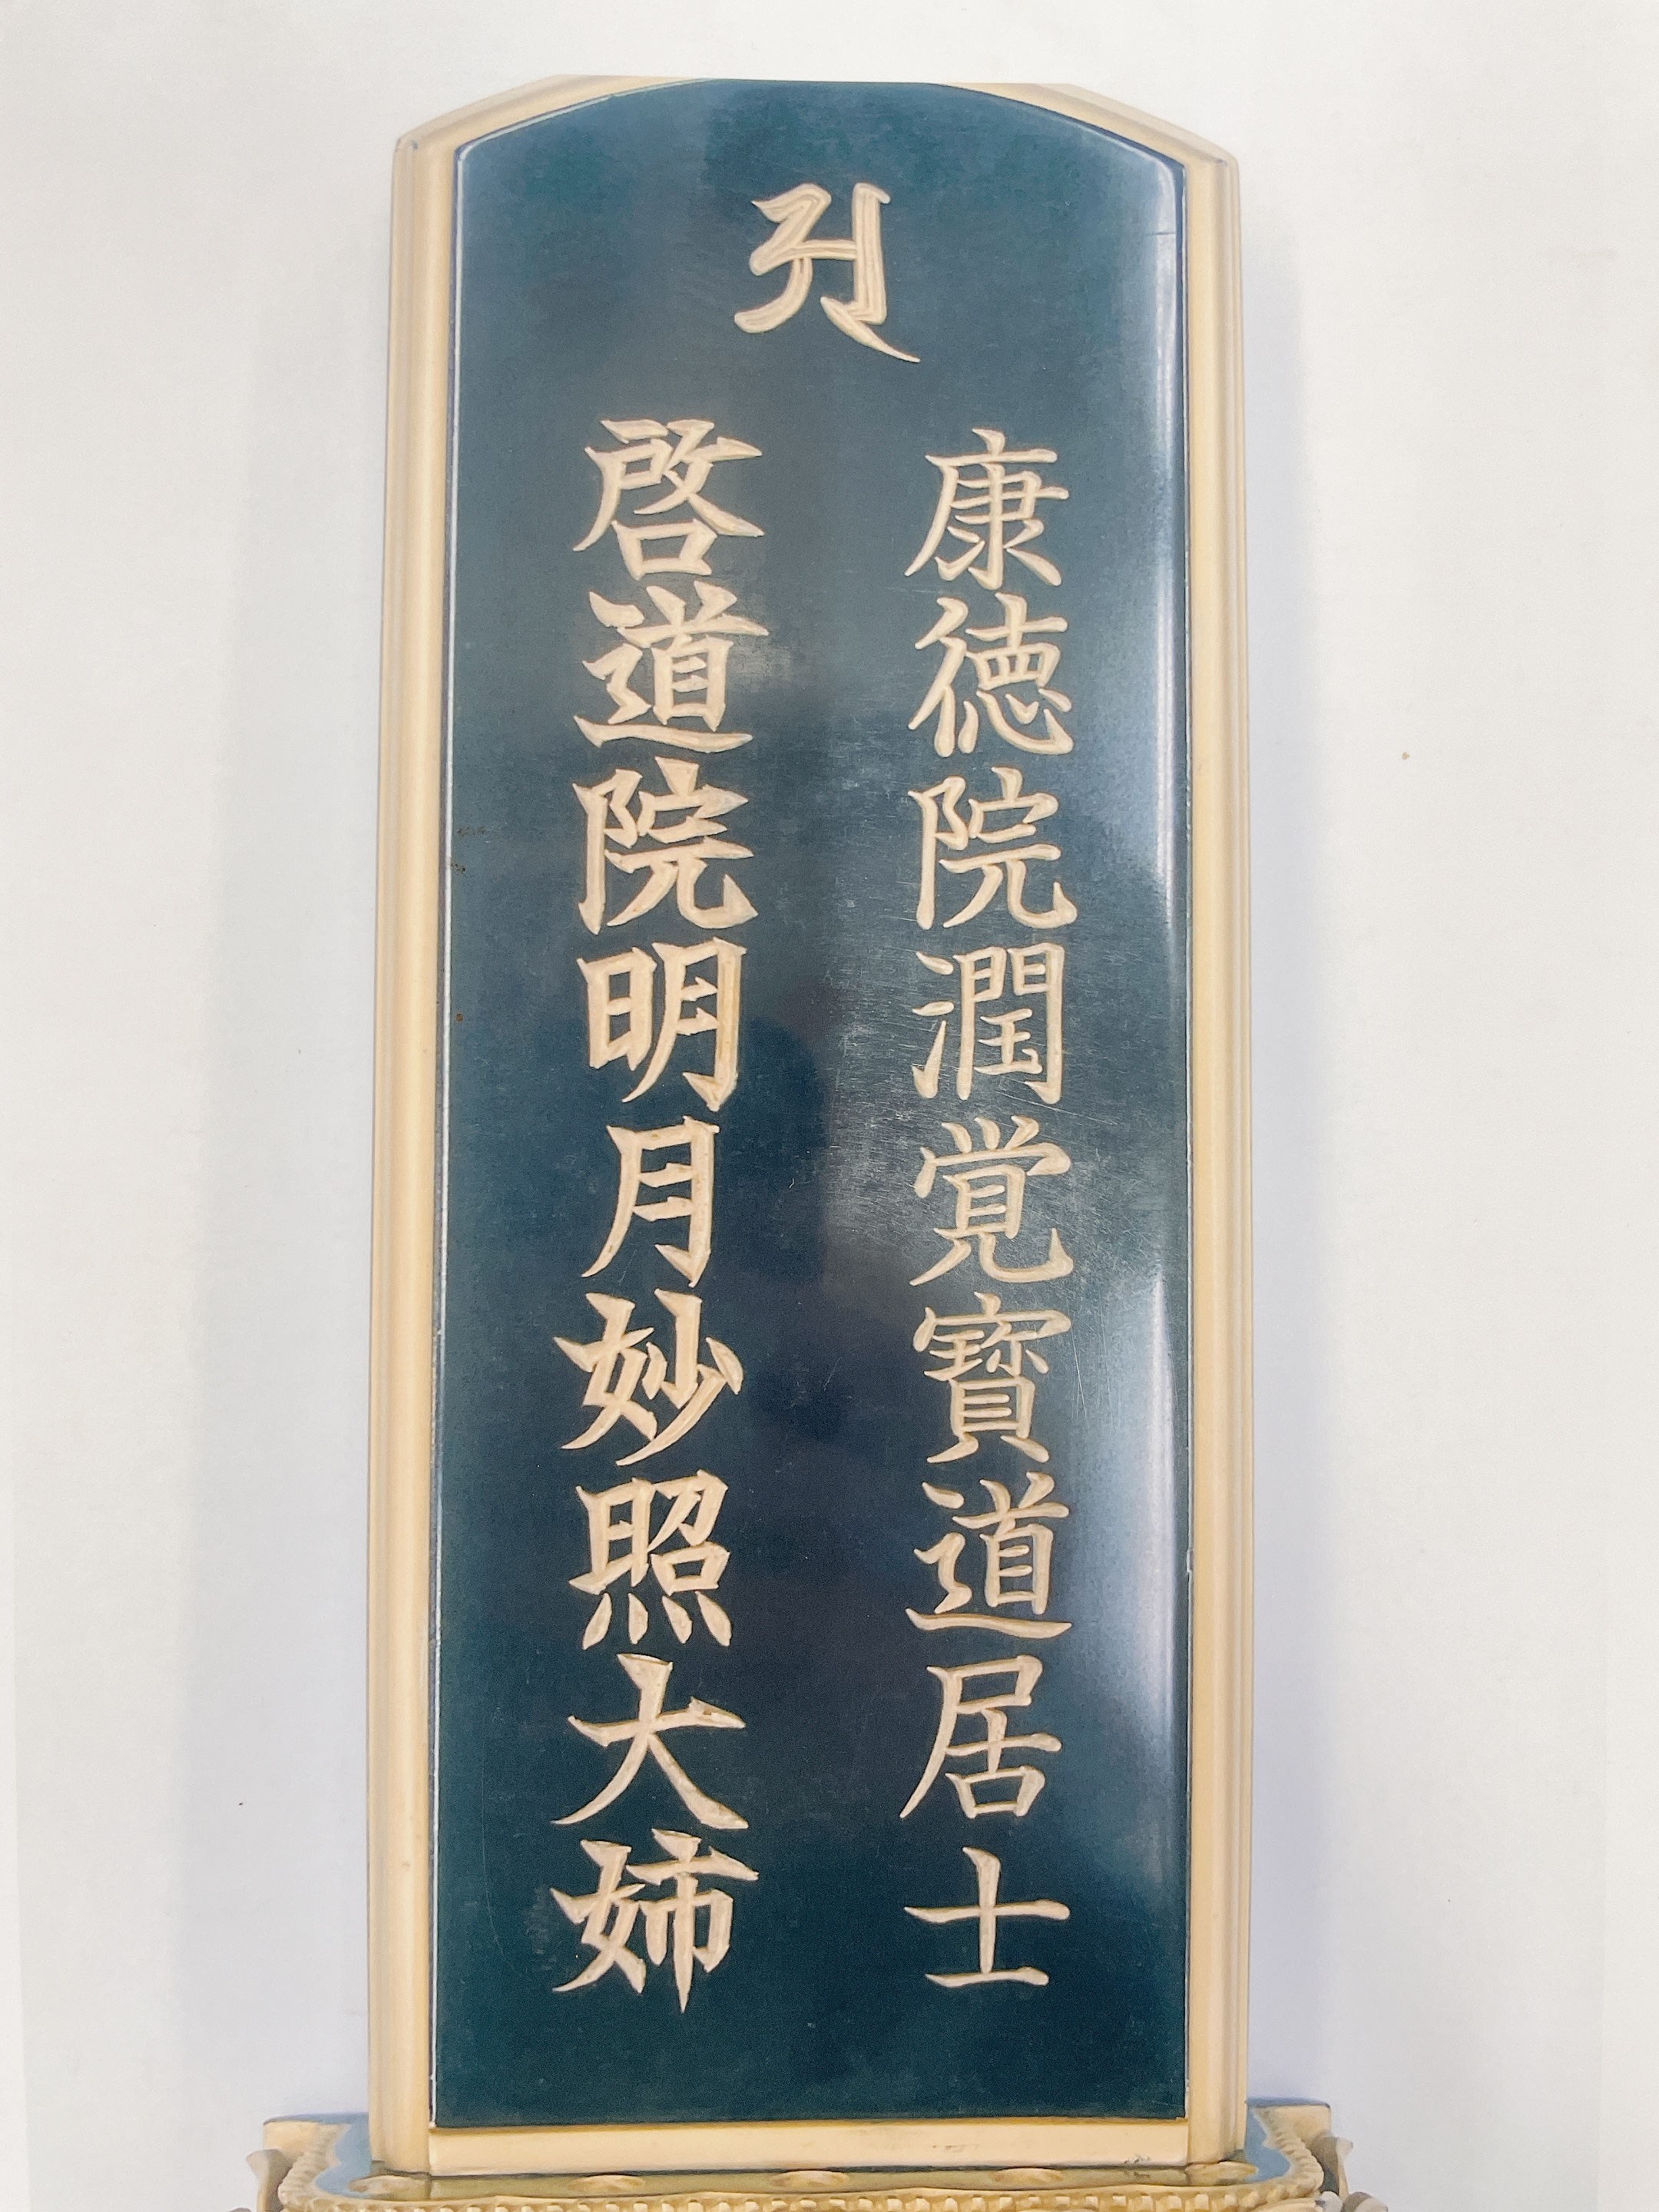 𑖀
康徳院潤覚寳道居士
啓道院明月妙照大姉